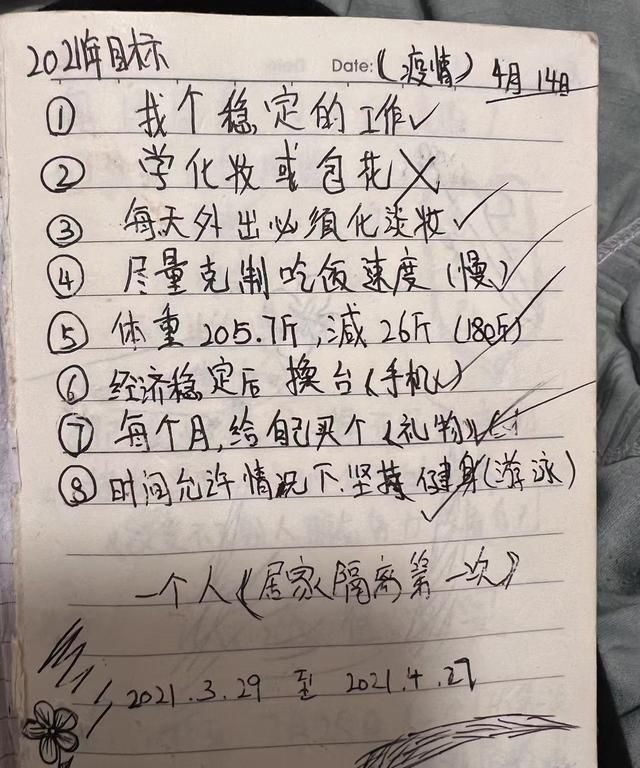 2021年目标
Date:(疫情) 4月14日
① 找个稳定的工作✓
② 学化妆或包花✗
③ 每天外出必须化淡妆✓
④ 尽量克制吃饭速度(慢)✓
⑤ 体重205.7斤,减26斤(180斤)
⑥ 经济稳定后 换台《手机》✓
⑦ 每个月,给自己买个《礼物》✓
⑧ 时间允许情况下.坚持健身(游泳)✓
一个人《居家隔离第一次》
2021.3.29 至 2021.4.27